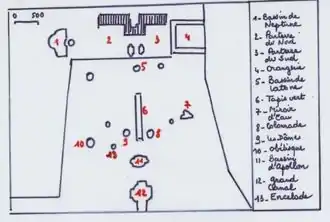 0 500
1 2 3 4
5
6
7
8
9
10
13
11
12
1 - Bassin de
Neptune
2 - Parterre du
Nord
3 - Parterre
du Sud
4 - Orangerie
5 - Bassin de
latone
6 - Tapis vert
7 - Miroir
d'Eau
8 - Colonnade
9 - les Dômes
10 - obélisque
11 - Bassin
d'Apollon
12 - grand
Canal
13 - Encelade